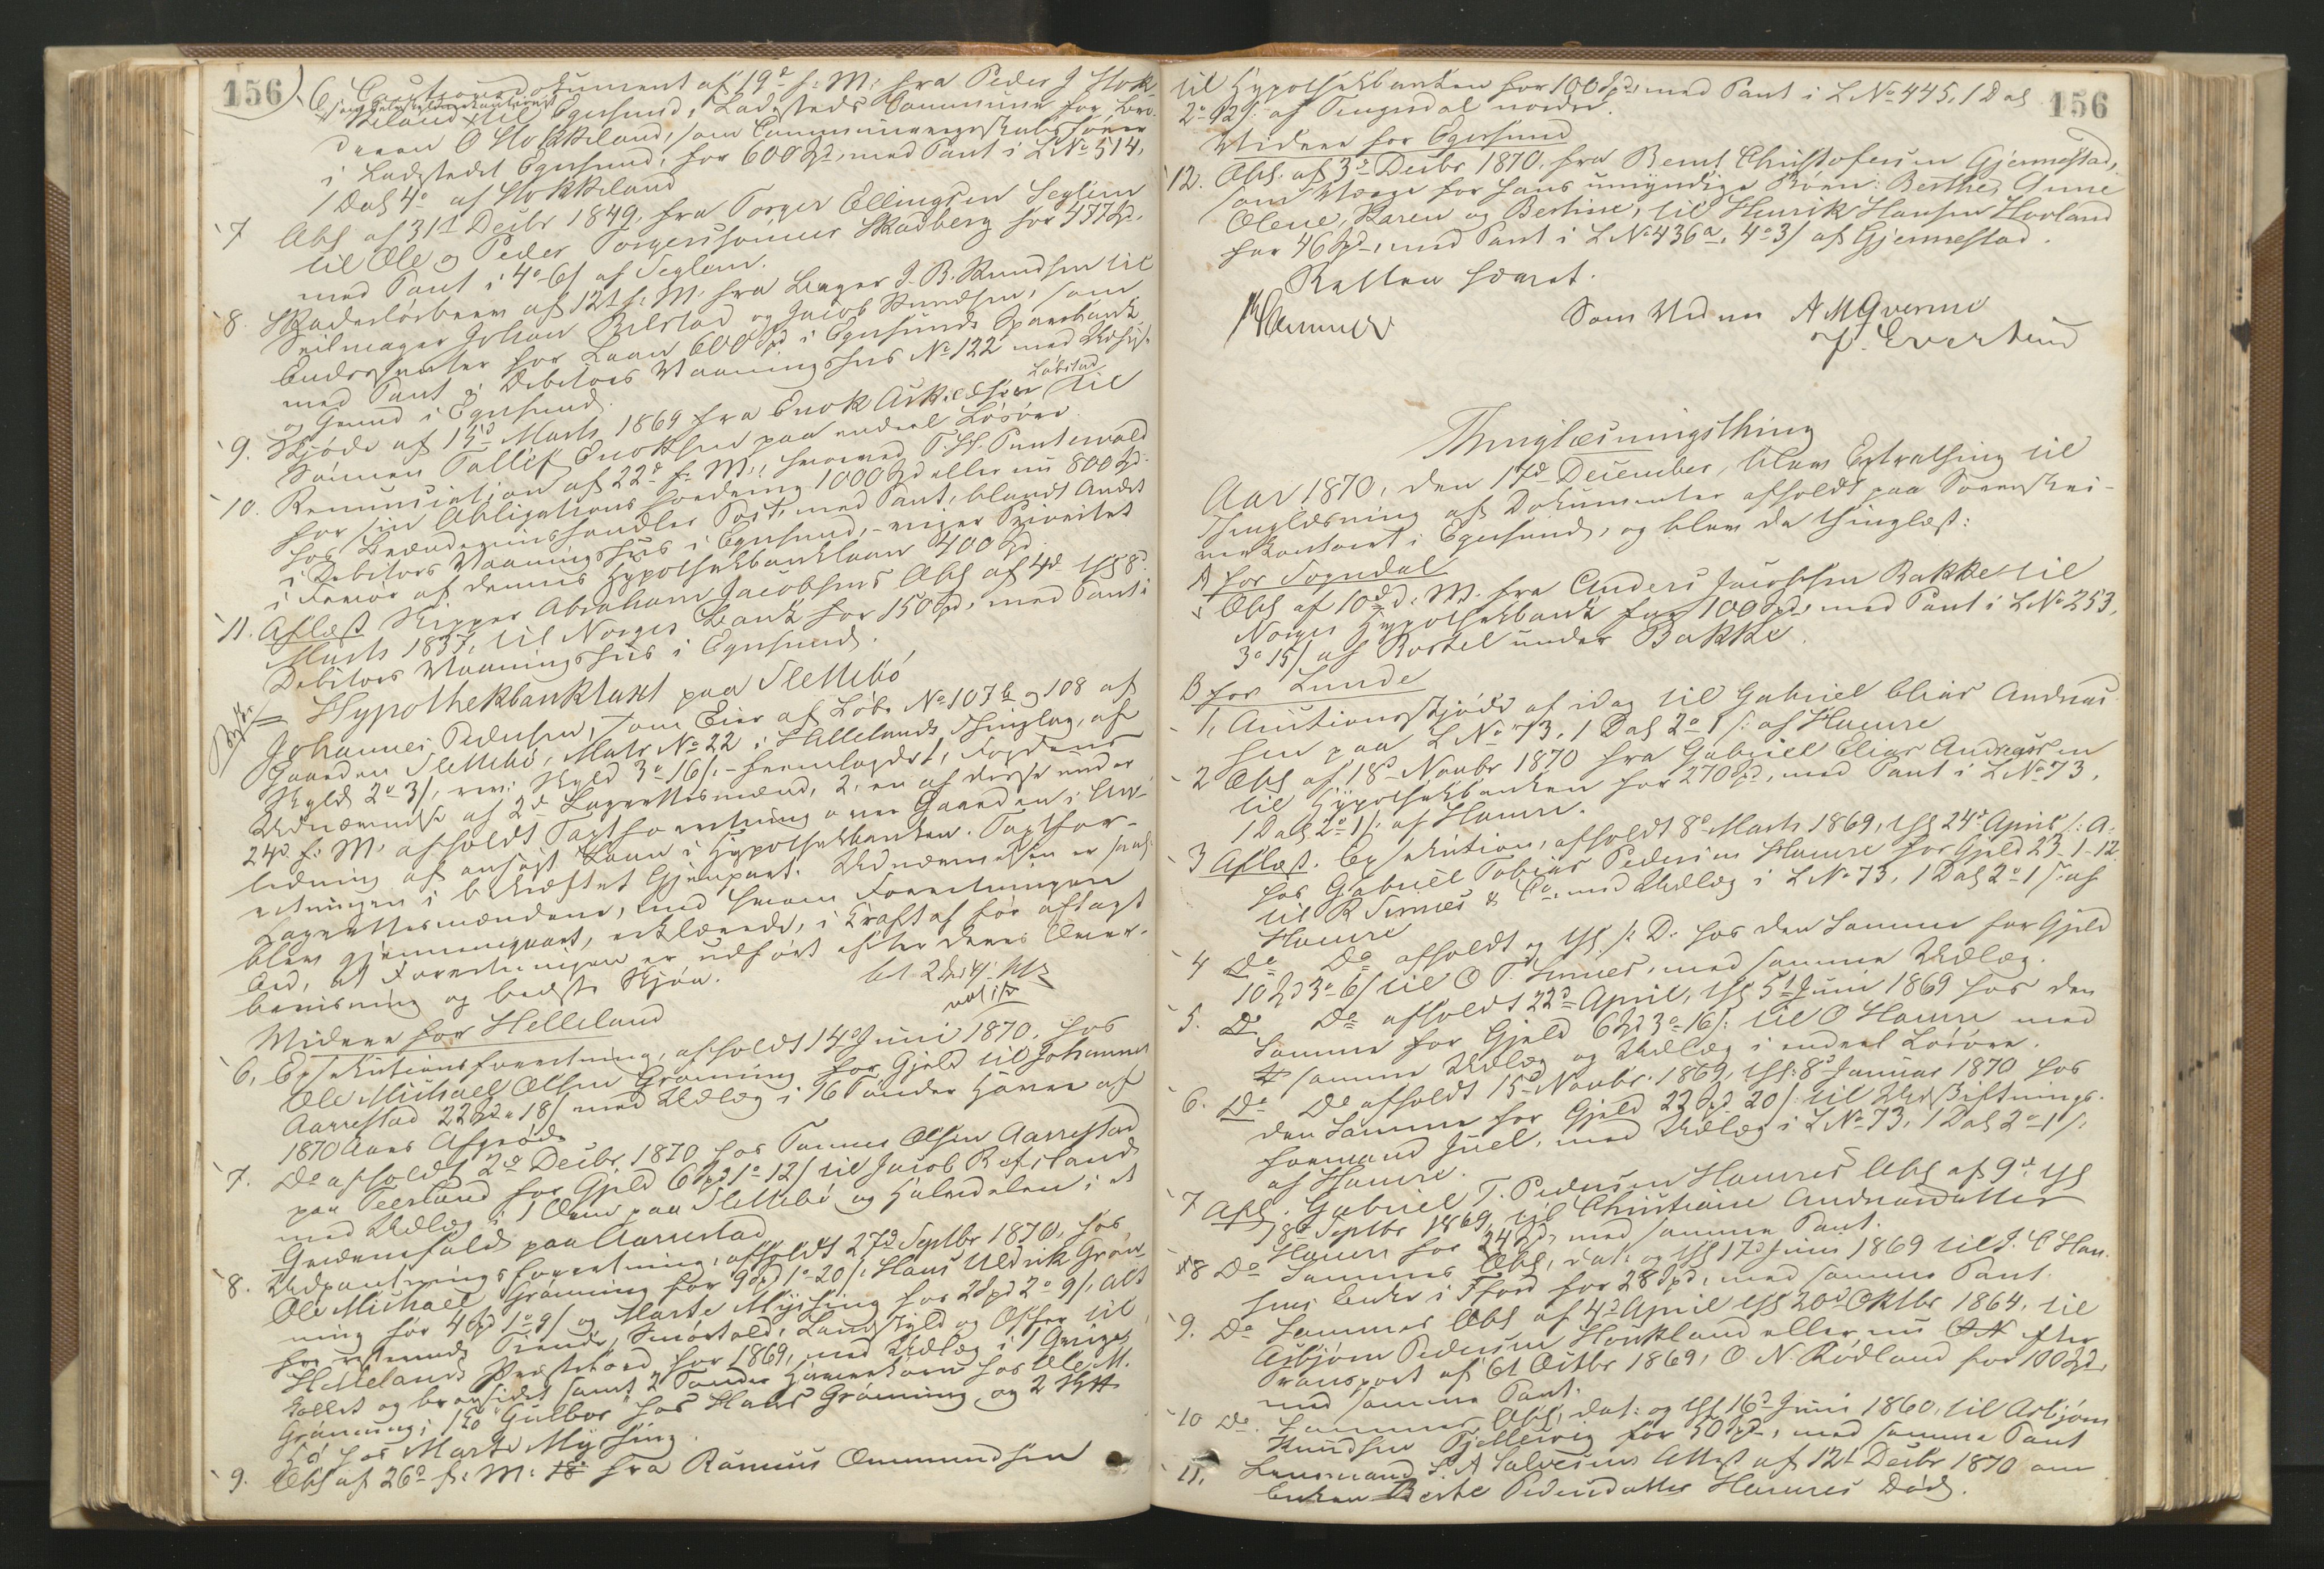 156
6 Cautionsdokument af 19d f: M: fra Peder J Hok-
keland til Egersunds Ladesteds Commune for Bro-
deren O Hokkeland, som Communeregnskabsfører
i Ladestedet Egersund, for 600 Spd, med Pant i L No 514,
1 Dal 4o af Hokkeland
7 Obl af 31t Decbr 1849, fra Torger Ellingsen Seglem
til Ole og Peder Torgerssønner Skadberg for 477 Spd
med Pant i 4o 6s af Seglem.
8. Skadesløsbrev af 12t f: M: fra Bager J. B. Knudsen til
Seilmager Johan Bilstad og Jacob Knudsen, som
Endossenter for Laan 600 Spd i Egersunds Sparebank
med Pant i Debitors Vaaningshus No 122 med Udhus
og Grund i Egersund.
9. Skjøde af 15d Marts 1869 fra Enok Løbstad til
Sønnen Tollef Enoksen paa endeel Løsøre
10. Renunciation af 22d f: M:, hvorved T. H. Puntervold
for sin Obligations fordring 1000 Spd eller nu 800 Spd
hos Brændeviinshandler Post, med Pant, blandt Andet
i Debitors Vaaningshus i Egersund, - viger Prioritet
i Favør af dennes Hypothekbanklaan 400 Spd.
11. Aflæst Skipper Abraham Jacobsens Obl af 4d thl 8d
Marts 1837, til Norges Bank for 150 Spd, med Pant i
Debitors Vaaningshus i Egersund.
Hypothekbanktaxt paa Slettebø
Johannes Pedersen, som Eier af Løbe No 107 b og 108 af
Gaarden Slettebø, Matr No 22 i Hellelands Thinglag, af
Skyld 2o 3s, rev: Skyld 3o 16s, - fremlagdet, Fogdens
Udnævnelse af 2d Lagrettesmænd, 2, en af disse under
24d f: M: afholdt Taxtforretning over Gaarden i An-
ledning af ansøgt Laan i Hypothekbanken. Taxtfor-
retningen i bekræftet Gjenpart. Udnævnelsen er
Lagrettesmændene, med hvem Forretningen
blev gjennemgaaet, erklærede, i Kraft af før aflagt
Ed, at Forretningen er udført efter deres Over-
beviisning og bedste Skjøn.
Videre for Helleland
6, Exsekutionsforretning, afholdt 14d Juni 1870, hos
Ole Michael Olsen Grøning for Gjeld til Johannes
Aarrestad 22 Spd 18s med Udlæg i 16 Tønder Havre af
1870 Aars Afgrøde
7. Do afholdt 2d Decbr 1870 hos Tønnes Olsen Aarrestad
paa Teesland for Gjeld 6 Spd 1o 12s til Jacob Refsland
med Udlæg i 1 Ovn paa Slettebø og Halvdelen i et
Grødeneshald paa Aarrestad
8. Udpantningsforretning, afholdt 27d Septbr 1870, hos
Ole Michael Grøning for 9 Spd 1o 20s, Hans Uldrik Grø-
ning for 4 Spd 1o 9s og Marte Mysing for 2 Spd 2o 9s, alt
for resterende Tiende, Smørtold, Landskyld og Offer til
Hellelands Prestebord for 1869, med Udlæg i 1 Qvige
kollet og brandsidet samt 2 Tønder Havrekorn hos Ole M.
Grøning, 1 Ko Gulbor hos Hans Grøning og 2
hos Marte Mysing.
9. Obl af 26d f: M: fra Rasmus Ommundsen
156
til Hypothekbanken for 100 Spd, med Pant i L No 445, 1 Dal
2o 12s af Tengesdal nordre.
Videre for Egersund
12. Obl. af 3d Decbr 1870, fra Bernt Christofersen Gjermestad,
som Værge for hans umyndige Børn: Berthe, Anne
Olene, Karen og Bertine, til Henrik Hansen Hovland
for 46 Spd, med Pant i L No 436 a, 4o 3s af Gjermestad.
Retten hævet.
Som Vidner A M Qverme
J. Evertsen
Thinglæsningsthing
Aar 1870, den 17d December, blev Extrathing til
Thinglæsning af Dokumenter afholdt paa Sorenskri-
verkontoret i Egersund, og blev da thinglæst:
A for Sogndal
Obl af 10d d. M. fra Anders Jacobsen Bakke til
Norges Hypothekbank for 100 Spd, med Pant i L No 253,
3o 15s af Rostøl under Bakke.
B for Lunde
1, Auctionsskjøde af idag til Gabriel Elias Andreas-
sen paa L No 73, 1 Dal 2o 1s: af Hamre
2 Obl af 18d Novbr 1870 fra Gabriel Elias Andreassen
til Hypothekbanken for 270 Spd, med Pant i L No 73,
1 Dal 2o 1s: af Hamre.
3 Aflæst. Exsekution, afholdt 8d Marts 1869, thl 24d April s: A.
hos Gabriel Tobias Pedersen Hamre for Gjeld 23-1-12
til R Sirnes & Co, med Udlæg i L No 73, 1 Dal 2o 1s: af
Hamre
4 Do Do afholdt og thl s: D. hos den Samme for Gjeld
10 Spd 3o 6s til O T. Sirnes, med samme Udlæg.
5. Do Do afholdt 22d April, thl 5t Juni 1869 hos den
Samme for Gjeld 6 Spd 3o 16s: til O Hamre med
samme Udlæg og Udlæg i endeel Løsøre.
6. Do Do afholdt 15d Novbr. 1869, thl: 8d Januar 1870 hos
den Samme for Gjeld 22 Spd 20s: til Udskiftnings-
formand Juel, med Udlæg i L No 73, 1 Dal 2o 1s:
af Hamre.
7 Afl. Gabriel T. Pedersen Hamres Obl af 9d thl
18d Septbr 1869, til Christiane Andreasdatter
Hamre for 242 Spd, med samme Pant.
8 Do Sammes Obl, dat: og thl 17d Juni 1869 til J. C Han-
sens Enke i Ffjord for 28 Spd, med samme Pant.
9. Do Sammes Obl af 4d April thl 20d Oktbr 1864, til
Asbjørn Pedersen Haukland eller nu efter
Transport af 6t Octbr 1869, O. N. Rødland for 100 Spd,
med samme Pant.
10 Do. Sammes Obl, dat: og thl 16d Juni 1860, til Asbjørn
Knudsen Fjellsvig for 50 Spd, med samme Pant
11, Lensmand S. A Salvesens Attest af 12t Decbr 1870 om
Enken Berte Pedersdatter Hamres Død.